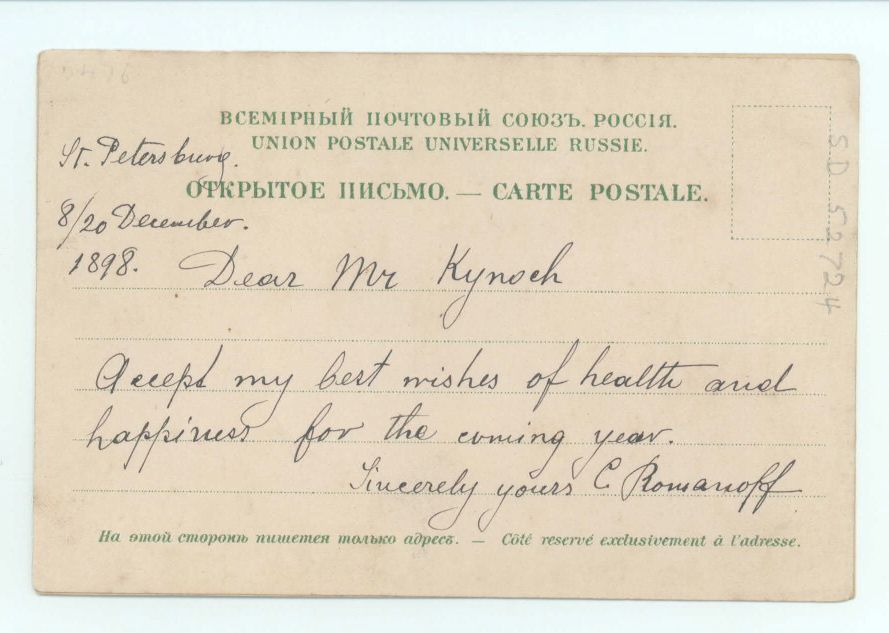 ВСЕМІРНЫЙ ПОЧТОВЫЙ СОЮЗЪ. РОССІЯ.
UNION POSTALE UNIVERSELLE RUSSIE.
St. Petersburg.
ОТКРЫТОЕ ПИСЬМО. — CARTE POSTALE.
8/20 December.
1898.
Dear Mr Kynoch
Accept my best wishes of health and
happiness for the coming year.
Sincerely yours C Romanoff
На этой сторонѣ пишется только адресъ. — Côté reservé exclusivement à l'adresse.
SD 52724